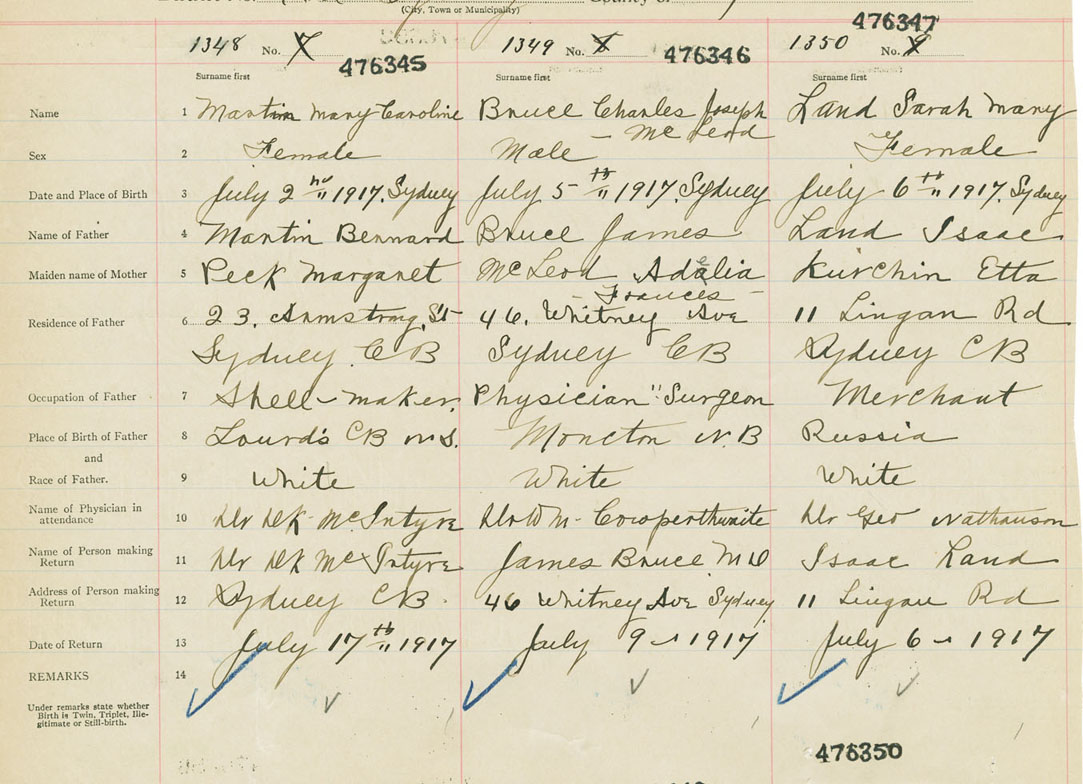 (City, Town or Municipality)
476347
1348 No. 7 1349 No. 8 1350 No. 9
476345 476346
Surname first Surname first Surname first
Name 1 Martin Mary Caroline Bruce Charles Joseph Land Sarah Mary
— McLeod
Sex 2 Female Male Female
Date and Place of Birth 3 July 2nd " 1917. Sydney July 5th " 1917. Sydney July 6th " 1917. Sydney
Name of Father 4 Martin Bernard Bruce James Land Isaac
Maiden name of Mother 5 Peck Margaret McLeod Adelia Kirchin Etta
— Frances —
Residence of Father 6 23. Armstrong St 46. Whitney Ave 11 Lingan Rd
Sydney C B Sydney C B Sydney C B
Occupation of Father 7 Shell-maker. Physician " Surgeon Merchant
Place of Birth of Father 8 Lourds CB N.S. Moncton N.B Russia
and
Race of Father. 9 White White White
Name of Physician in
attendance 10 Dr DK McIntyre Dr W N- Cowperthwaite Dr Geo Nathanson
Name of Person making
Return 11 Dr DK McIntyre James Bruce MD Isaac Land
Address of Person making
Return 12 Sydney CB. 46 Whitney Ave Sydney 11 Lingan Rd
Date of Return 13 July 17th " 1917 July 9 - 1917 July 6 - 1917
REMARKS 14
Under remarks state whether
Birth is Twin, Triplet, Ille-
gitimate or Still-birth.
476350